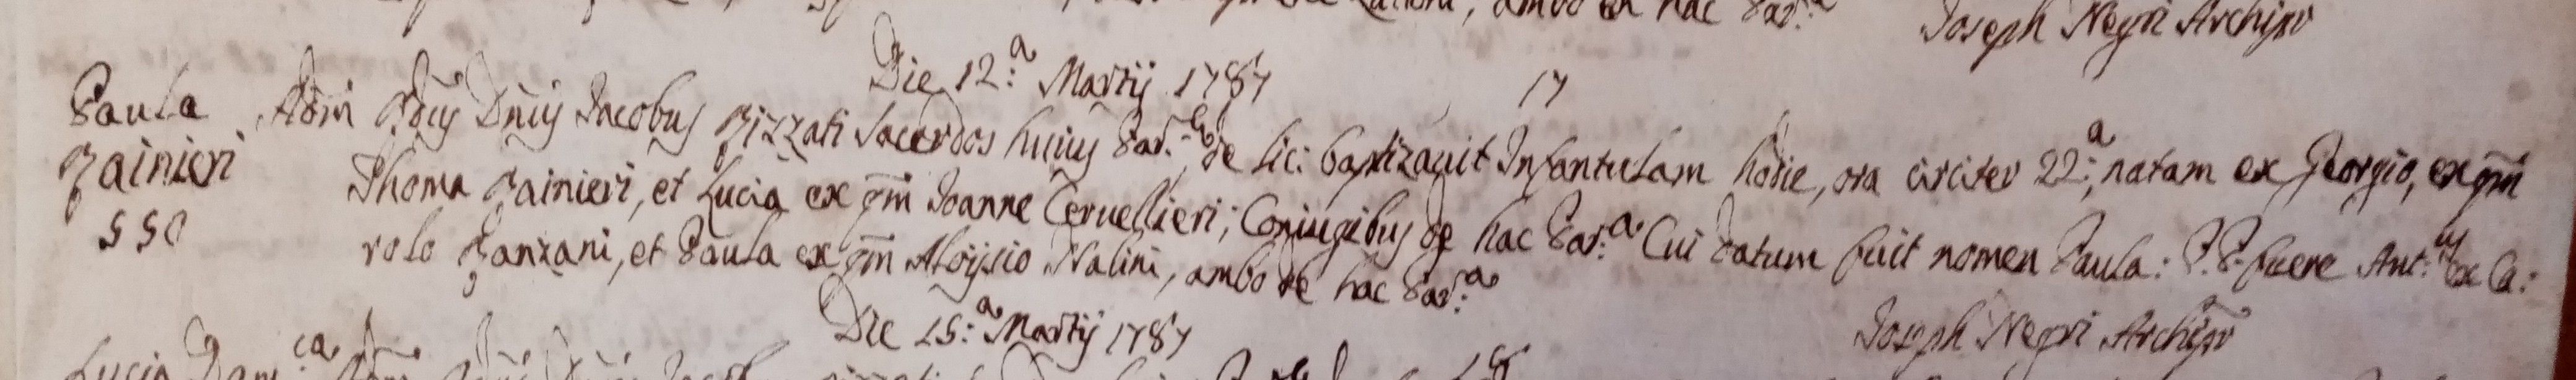 ambo ex hac Par.a
Joseph Negri Archipr
Die 12:a Martij 1787
17
Paula
Rainieri
550
Adm Rdus Dnus Jacobus Rizzati Sacerdos huius Par.æ de lic: baptizauit Infantulam hodie, ora circiter 22:a, natam ex Georgio, ex qm
Thoma Rainieri, et Lucia ex qm Joanne Ceruellieri; Coniugibus de hac Par:a Cui datum fuit nomen Paula: P.P. fuere Ant:us ex Ca:
rolo Zanzani, et Paula ex qm Aloysio Nalini, ambo de hac Par:a
Joseph Negri Archipr
Die 15:a Martij 1787
Lucia Dom:ca